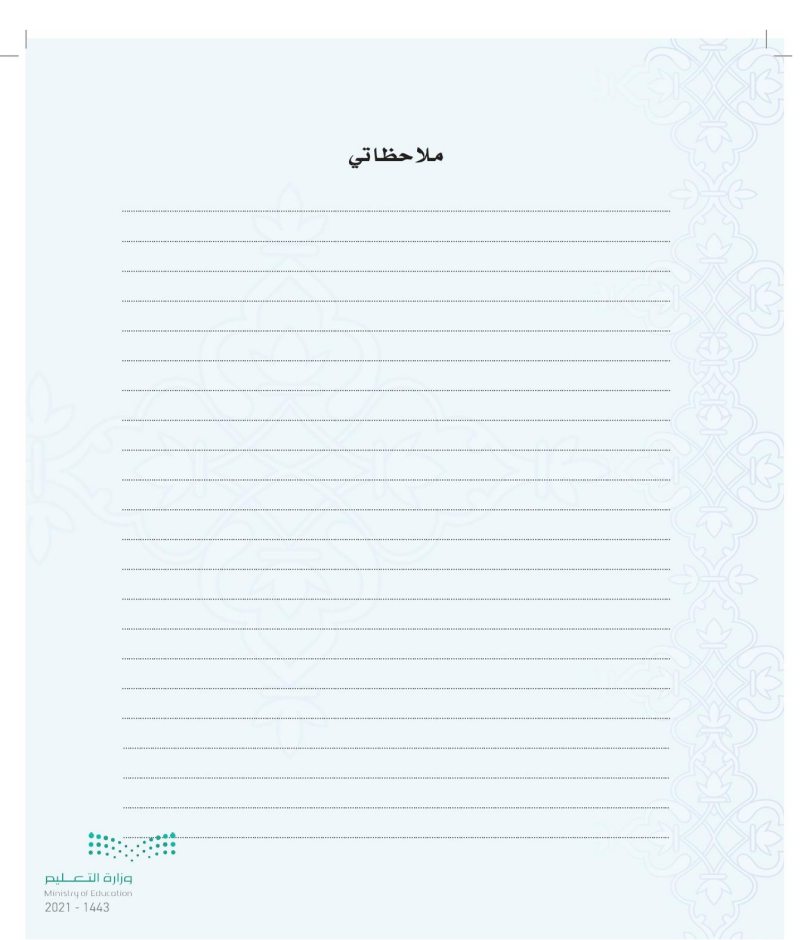 ملاحظاتي
وزارة التعليم
Ministry of Education
2021 - 1443